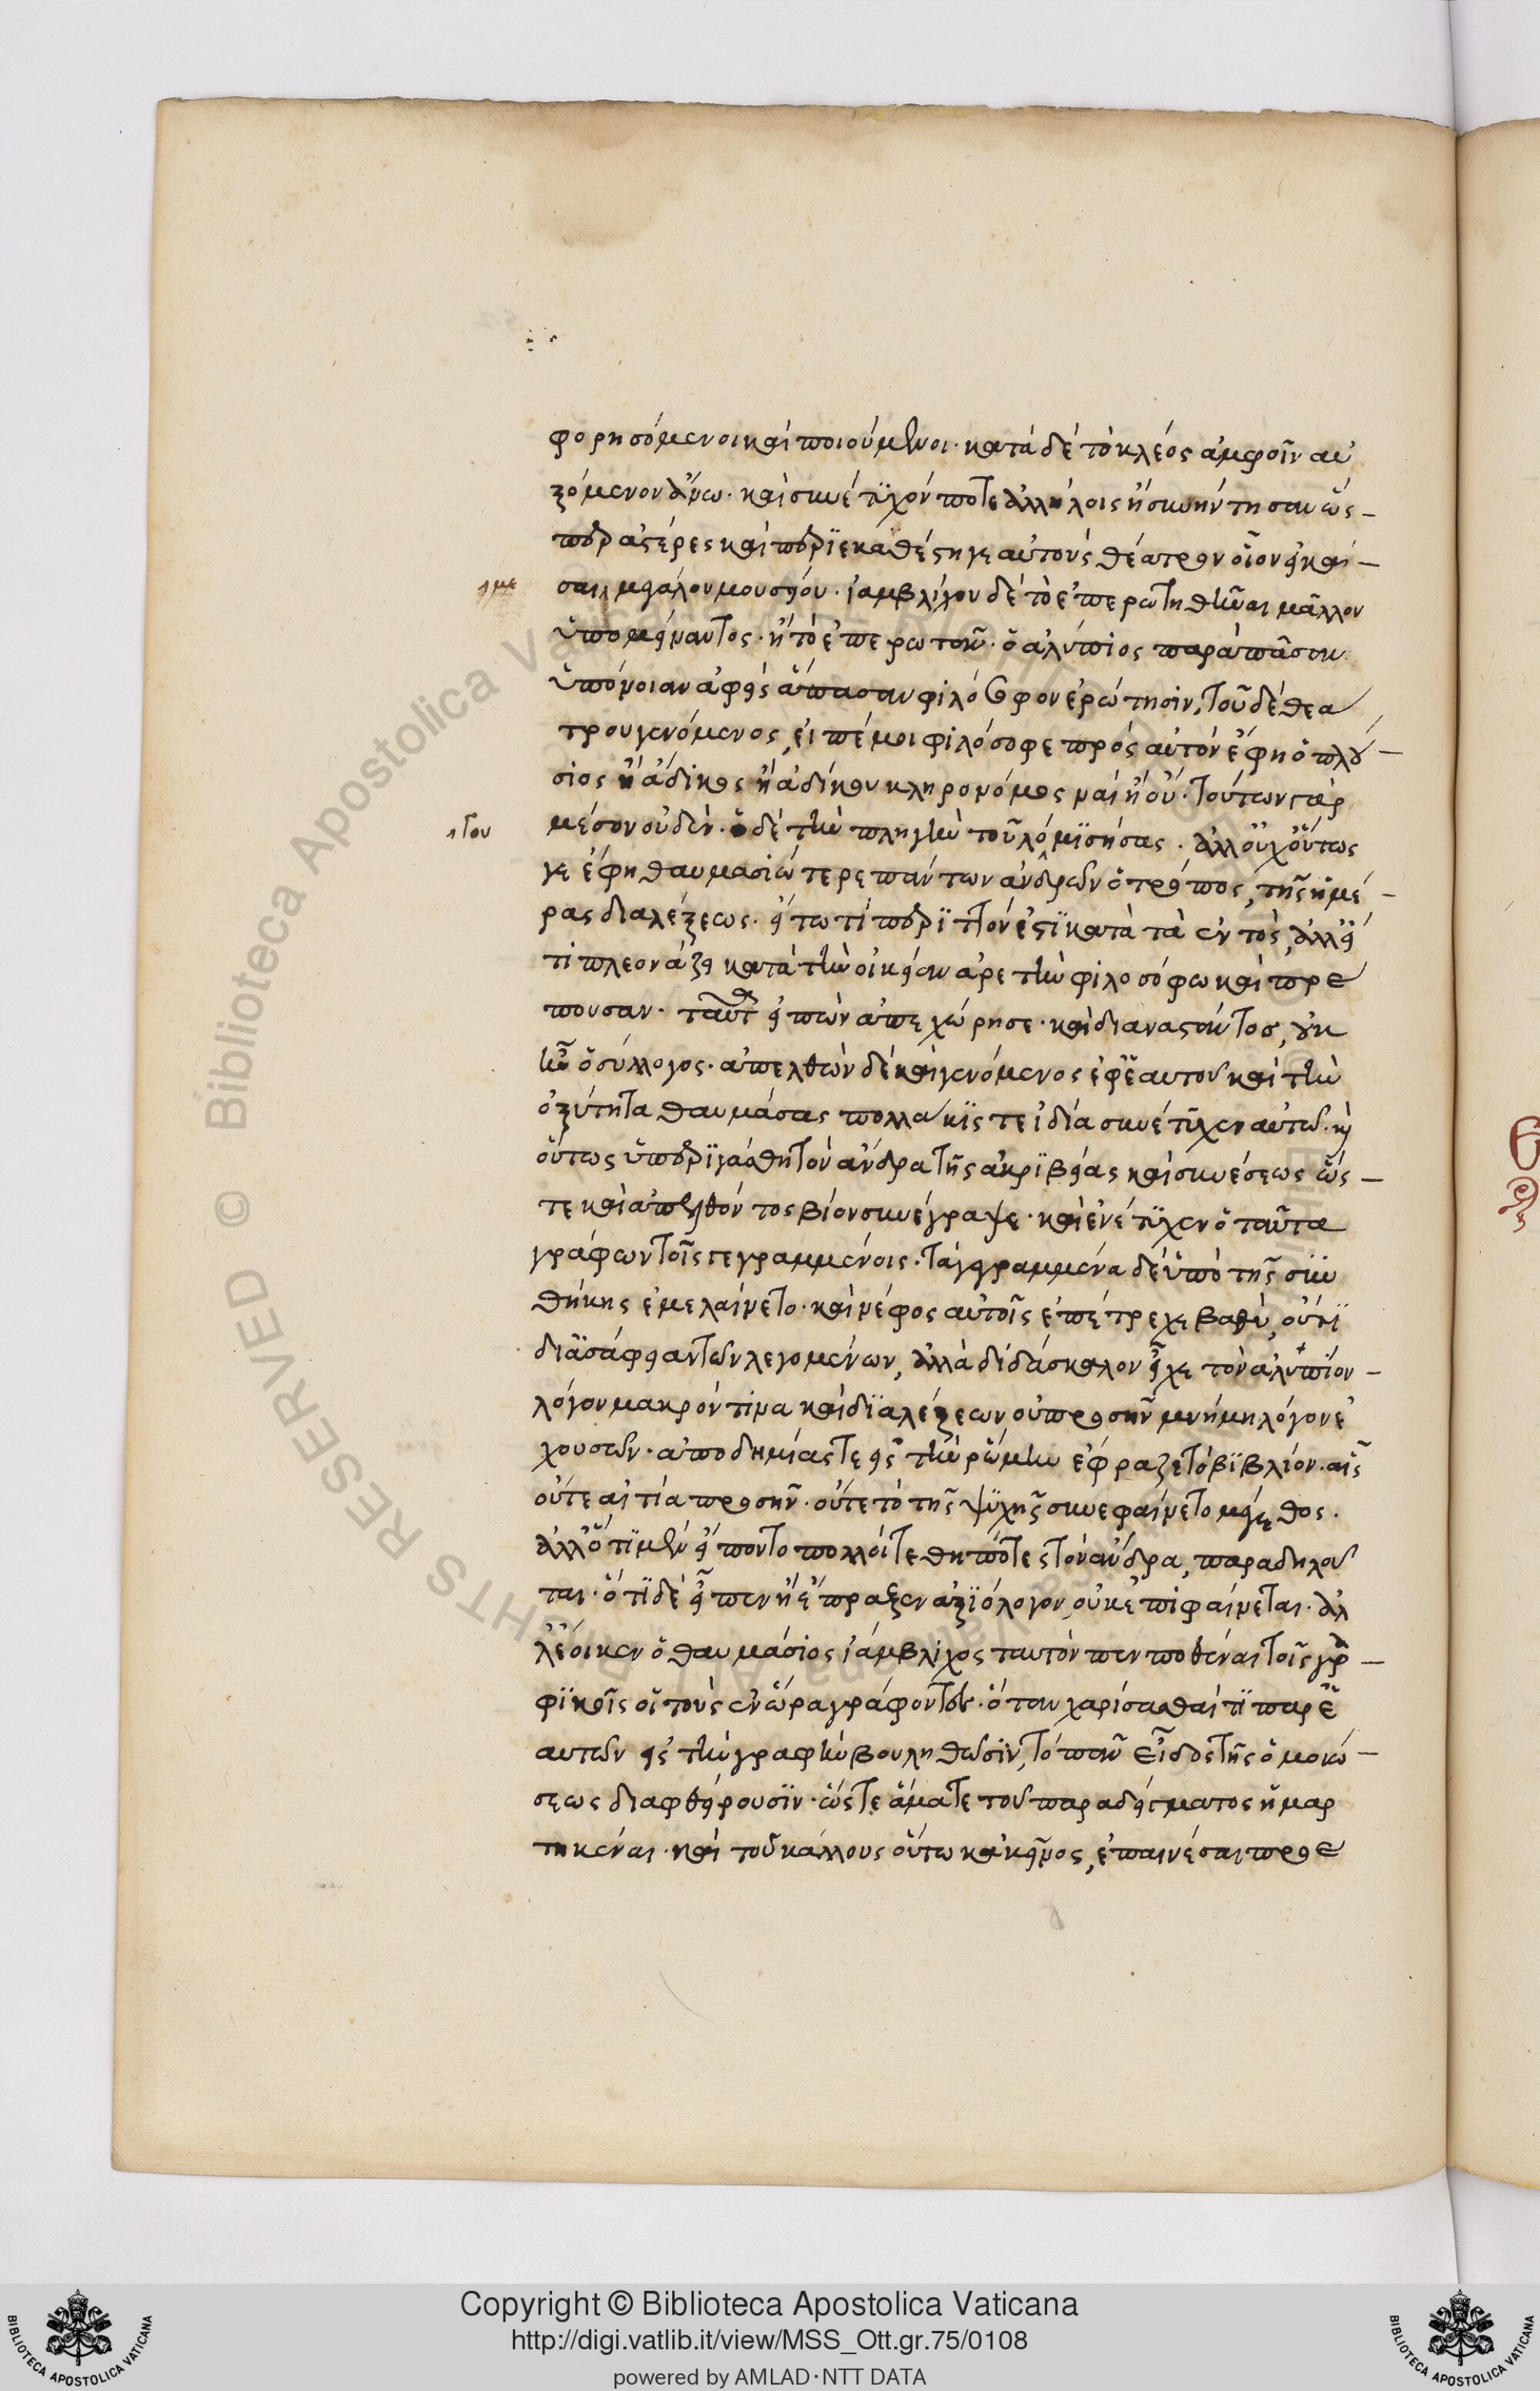 φορησόμενοι καὶ ποιούμενοι· κατὰ δὲ τὸ κλέος ἀμφοῖν αὐ
ξόμενον ἄνω· καὶ συνέτυχόν ποτε ἀλλήλοις ἢ συνήντησαν ὥς –
περ ἀστέρες καὶ περιεκαθέσθη γε αὐτοὺς θέατρον οἷον εἰκά –
σαι μεγάλου μουσείου· ἰαμβλίχου δὲ τὸ ἐπερωτηθῆναι μᾶλλον
ὑπομείναντος· ἢ τὸ ἐπερωτᾶν· ὁ ἀλύπιος παρὰ πᾶσαν
ὑπόνοιαν ἀφεὶς ἅπασαν φιλόσοφον ἐρώτησιν, τοῦ δὲ θεά
τρου γενόμενος, εἰπέ μοι φιλόσοφε πρὸς αὐτὸν ἔφη ὁ πλού –
σιος ἢ ἄδικος ἢ ἀδίκου κληρονόμος ναὶ ἢ οὔ· τούτων γὰρ
μέσον οὐδέν· ὁ δὲ τὴν πληγὴν τοῦ λόμισήσας· ἀλλ' οὐχ οὕτως
γε ἔφη θαυμασιώτερε πάντων ἀνδρῶν ὁ τρόπος, τῆς ἡμε –
ρας διαλέξεως· εἴ τω τί περιττόν ἐστι κατὰ τὰ ἐντὸς, ἀλλ' εἴ
τι πλεονάζει κατὰ τὴν οἰκείαν ἀρετὴν φιλοσόφω καὶ πρέ
πουσαν· ταῦτ' εἰπὼν ἀπεχώρησε· καὶ διαναστάντος, οὐκ
ἦν ὁ σύλλογος· ἀπελθὼν δὲ καὶ γενόμενος ἐφ' ἑαυτοῦ καὶ τὴν
ὀξύτητα θαυμάσας πολλάκις τε ἰδία συνέτυχεν αὐτῶ· καὶ
οὕτως ὑπερηγάσθη τὸν ἄνδρα τῆς ἀκριβείας καὶ συνέσεως ὥς –
τε καὶ ἀπελθόντος βίον συνέγραψε· καὶ ἐνέτυχεν ὁ ταῦτα
γράφων τοῖς γεγραμμένοις· τὰ γεγραμμένα δὲ ὑπὸ τῆς συν
θήκης ἐμελαίνετο· καὶ νέφος αὐτοῖς ἐπέτρεχε βαθύ, οὔτι
δι' ἀσάφειαν τῶν λεγομένων, ἀλλὰ διδάσκαλον εἶχε τὸν ἀλύπιον –
λόγον μακρόν τινα καὶ διαλέξεων οὐ προσῆν μνήμη λόγον ἐ
χουσῶν· ἀποδημίας τε εἰς τὴν ῥώμην ἔφραζε τὸ βιβλίον· αἷς
οὔτε αἰτία προσῆν· οὔτε τὸ τῆς ψυχῆς συνεφαίνετο μέγεθος·
ἀλλ' ὅτι μὲν εἵποντο πολλοὶ τεθηπότες τὸν ἄνδρα, παραδηλοῦ
ται· ὅ τι δὲ εἶπεν ἢ ἔπραξεν ἀξιόλογον, οὐκ ἐπιφαίνεται· ἀλ
λ' ἔοικεν ὁ θαυμάσιος ἰάμβλιχος ταυτὸν πεπονθέναι τοῖς γρα –
φικοῖς οἳ τοὺς ἐν ὥρα γράφοντες· ὅταν χαρίσασθαί τι παρ' ἑ
αυτῶν εἰς τὴν γραφὴν βουληθῶσιν, τὸ πᾶν εἶδος τῆς ὁμοιώ –
σεως διαφθείρουσιν· ὥστε ἅμα τε τοῦ παραδείγματος ἡμαρ
τηκέναι· καὶ τοῦ κάλλους οὕτω κἀκεῖνος, ἐπαινέσαι προε
Copyright © Biblioteca Apostolica Vaticana
http://digi.vatlib.it/view/MSS_Ott.gr.75/0108
powered by AMLAD·NTT DATA